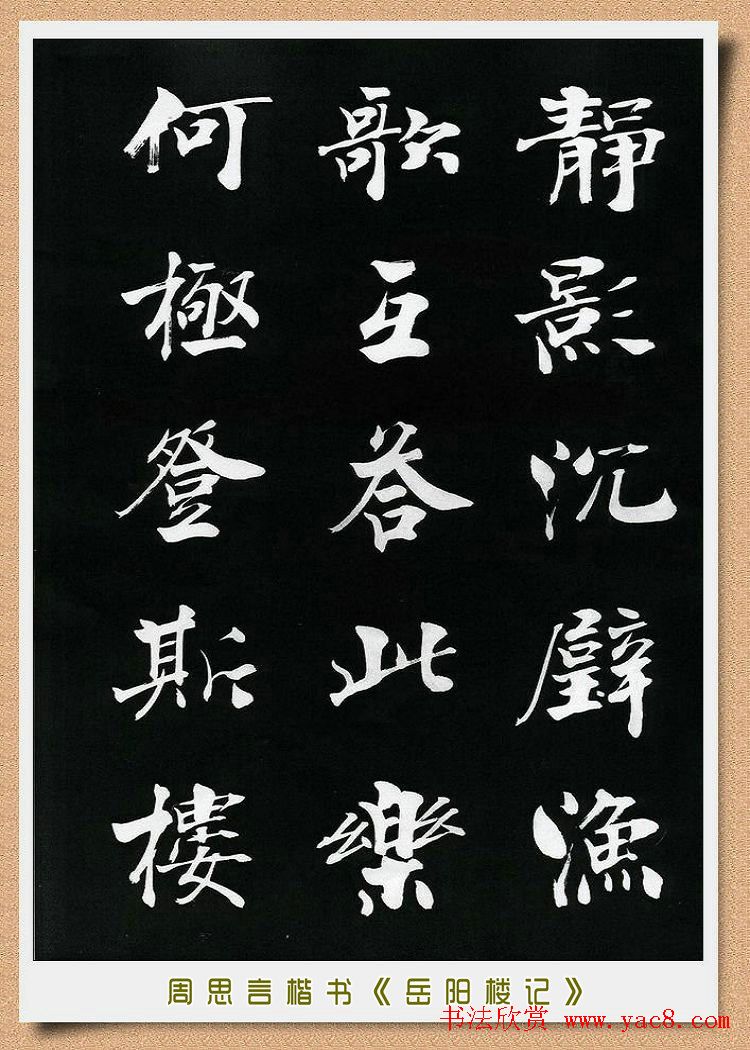 靜影沉璧漁
歌互荅此樂
何極登斯樓
周思言楷书《岳阳楼记》
书法欣赏 www.yac8.com